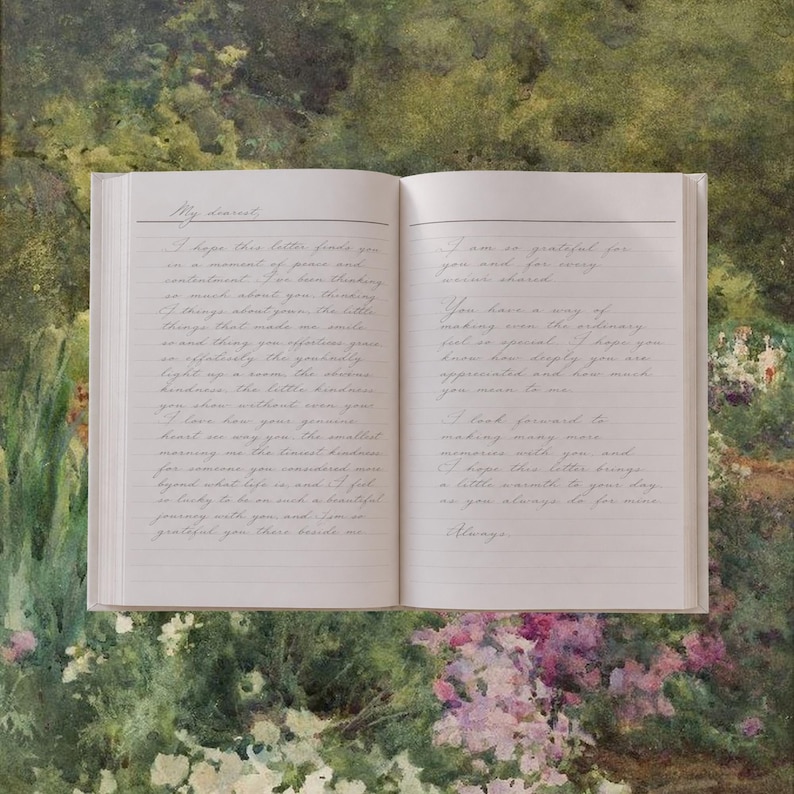 My dearest,
I hope this letter finds you
in a moment of peace and
contentment. I've been thinking
so much about you, thinking
I things about yown, the little
things that made me smile
so and thing you effortless grace
so effatisely the youhndly
light up a room, the obvious
kindness, the little kindness
you show without even you
I love how your genuine
heart see way you, the smallest
morning me the tiniest kindness
for someone you considered more
byond what life is, and I feel
so lucky to be on such a beautiful
journey with you, and I'm so
grateful you there beside me
I am so grateful for
you and for every
we've shared
You have a way of
making even the ordinary
feel so special. I hope you
know how deeply you are
appreciated and how much
you mean to me
I look forward to
making many more
memories with you, and
I hope this letter brings
a little warmth to your day,
as you always do for mine
Always